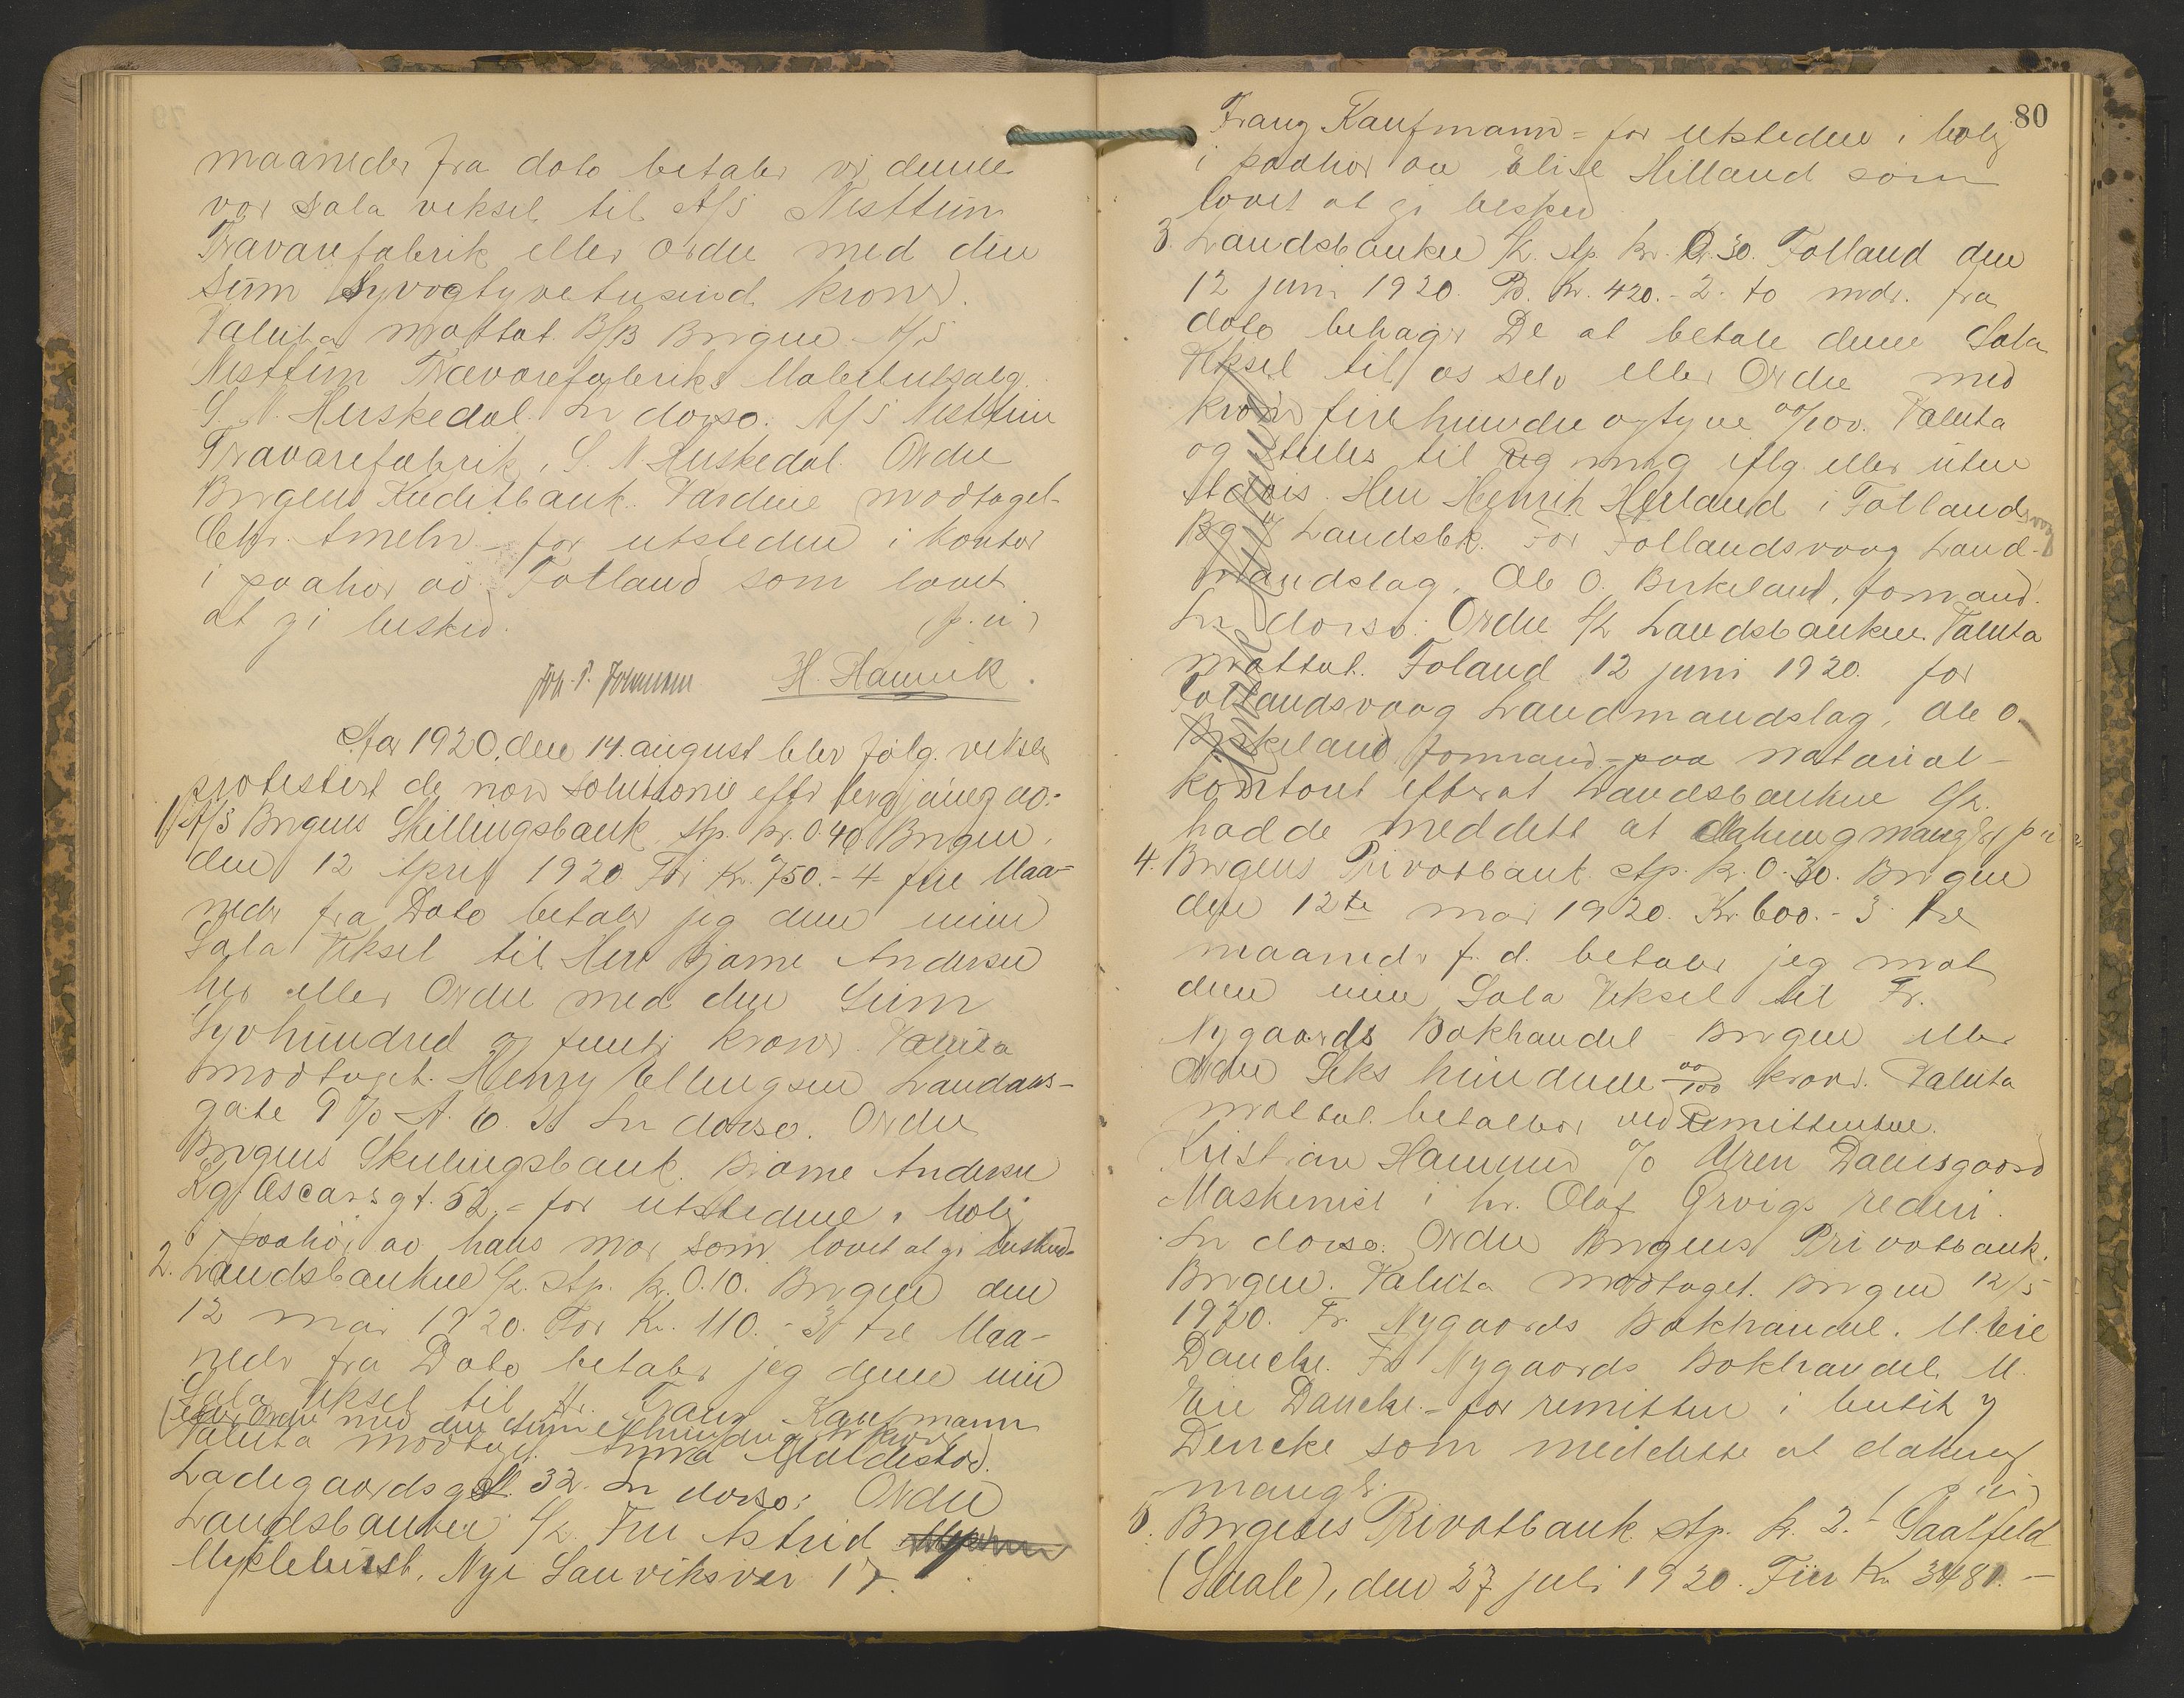 maaneder fra dato betaler vi denne
vor sola veksel til A/S Nesttun
Trævarefabrik eller ordre med den
sum syvogtyvetusind kroner.
Valuta mottat. B/B Bergen A/S
Nesttun Trævarefabriks Møbelutsalg.
S. N. Huskedal. In dorso: A/S Nesttun
Trævarefabrik, S. N. Huskedal. Ordre
Bergens Kreditbank. Værdien modtaget
Chr. Ameln - for utstederen i kontor
i paahør av Totland som lovet
at gi besked.
p. u)
Joh. P. Johnsen H. Hamrik.
Aar 1920, den 14. august blev følg. veksler
protestert de non solutione efter begjæring av:
1) A/S Bergens Skillingsbank, stp. kr. 0.40 Bergen,
den 12 April 1920. For Kr. 750.- 4 fire Maa-
neder fra Dato betaler jeg denne min
Sola Veksel til Herr Bjarne Andersen
her eller Ordre med den Sum
Syvhundred og femti kroner. Valuta
modtaget. Henry Ellingsen Landaas-
gate 9 In dorso. Ordre
Bergens Skillingsbank. Bjarne Andersen
Kg. Oscarsgt. 52.- for utstederen i bolig
i paahør av hans mor som lovet at gi besked.
2. Landsbanken A/L. stp. kr. 0.10. Bergen den
12 mai 1920. For Kr. 110.- 3 tre Maa-
neder fra Dato betaler jeg denne min
Sola Veksel til Hr. Franz Kaufmann
(eller Ordre med den sum Ethundreogti kroner
Valuta modtaget. Anna Myldestad.
Ladegaardsgt. 32. In dorso: Ordre
Landsbanken A/L. Fru Astrid
Myklebust, Nye Sandviksvei 17.
80
Franz Kaufmann - for utstederen i bolig
i paahør av Elise Hilland som
lovet at gi besked
3. Landsbanken A/L. stp. kr. 0.30. Folland den
12 juni 1920. B. Kr. 420.- 2. to mdr. fra
dato behager De at betale denne Sola
Veksel til os selv eller Ordre med
kroner firehundre og tyve 00/100. Valuta
og stilles til Regning iflg. eller uten
Advis. Herr Henrik Herland i Follandsvaag
Bg % Landsbk. For Follandsvaag Land-
mandslag. Ole O. Birkeland, formand.
In dorso: Ordre A/L Landsbanken. Valuta
mottat. Foland 12 juni 1920. for
Follandsvaag Landmandslag, Ole O.
Birkeland formand - paa notarial-
kontoret efterat Landsbanken A/L.
hadde meddelt at dækning mangler p. u)
Henrik Herland
4. Bergens Privatbank. stp. kr. 0.30. Bergen
den 12te mai 1920. Kr. 600.- 3 tre
maaneder f. d. betaler jeg mot
denne min Sola Veksel til Fr.
Nygaards Bokhandel - Bergen eller
Ordre Seks hundrede 00/100 kroner. Valuta
mottat. betalbar ved Remittenten.
Kristian Hammer % Uren Damsgaard
Maskinist i hr. Olaf Ørvigs rederi.
In dorso. Ordre Bergens Privatbank.
Bergen. Valuta modtaget. Bergen 12/5
1920. Fr. Nygaards Bokhandel. M. Eie
Dancke. Fr Nygaards Bokhandel. M.
Eie Dancke. - for remitten i butik
Dencke som meddelte at dækning
mangler. p. u)
5. Bergens Privatbank. stp. kr. 2.- Saalfeld
(Saale), den 27. juli 1920. Für Kr. 3481.-